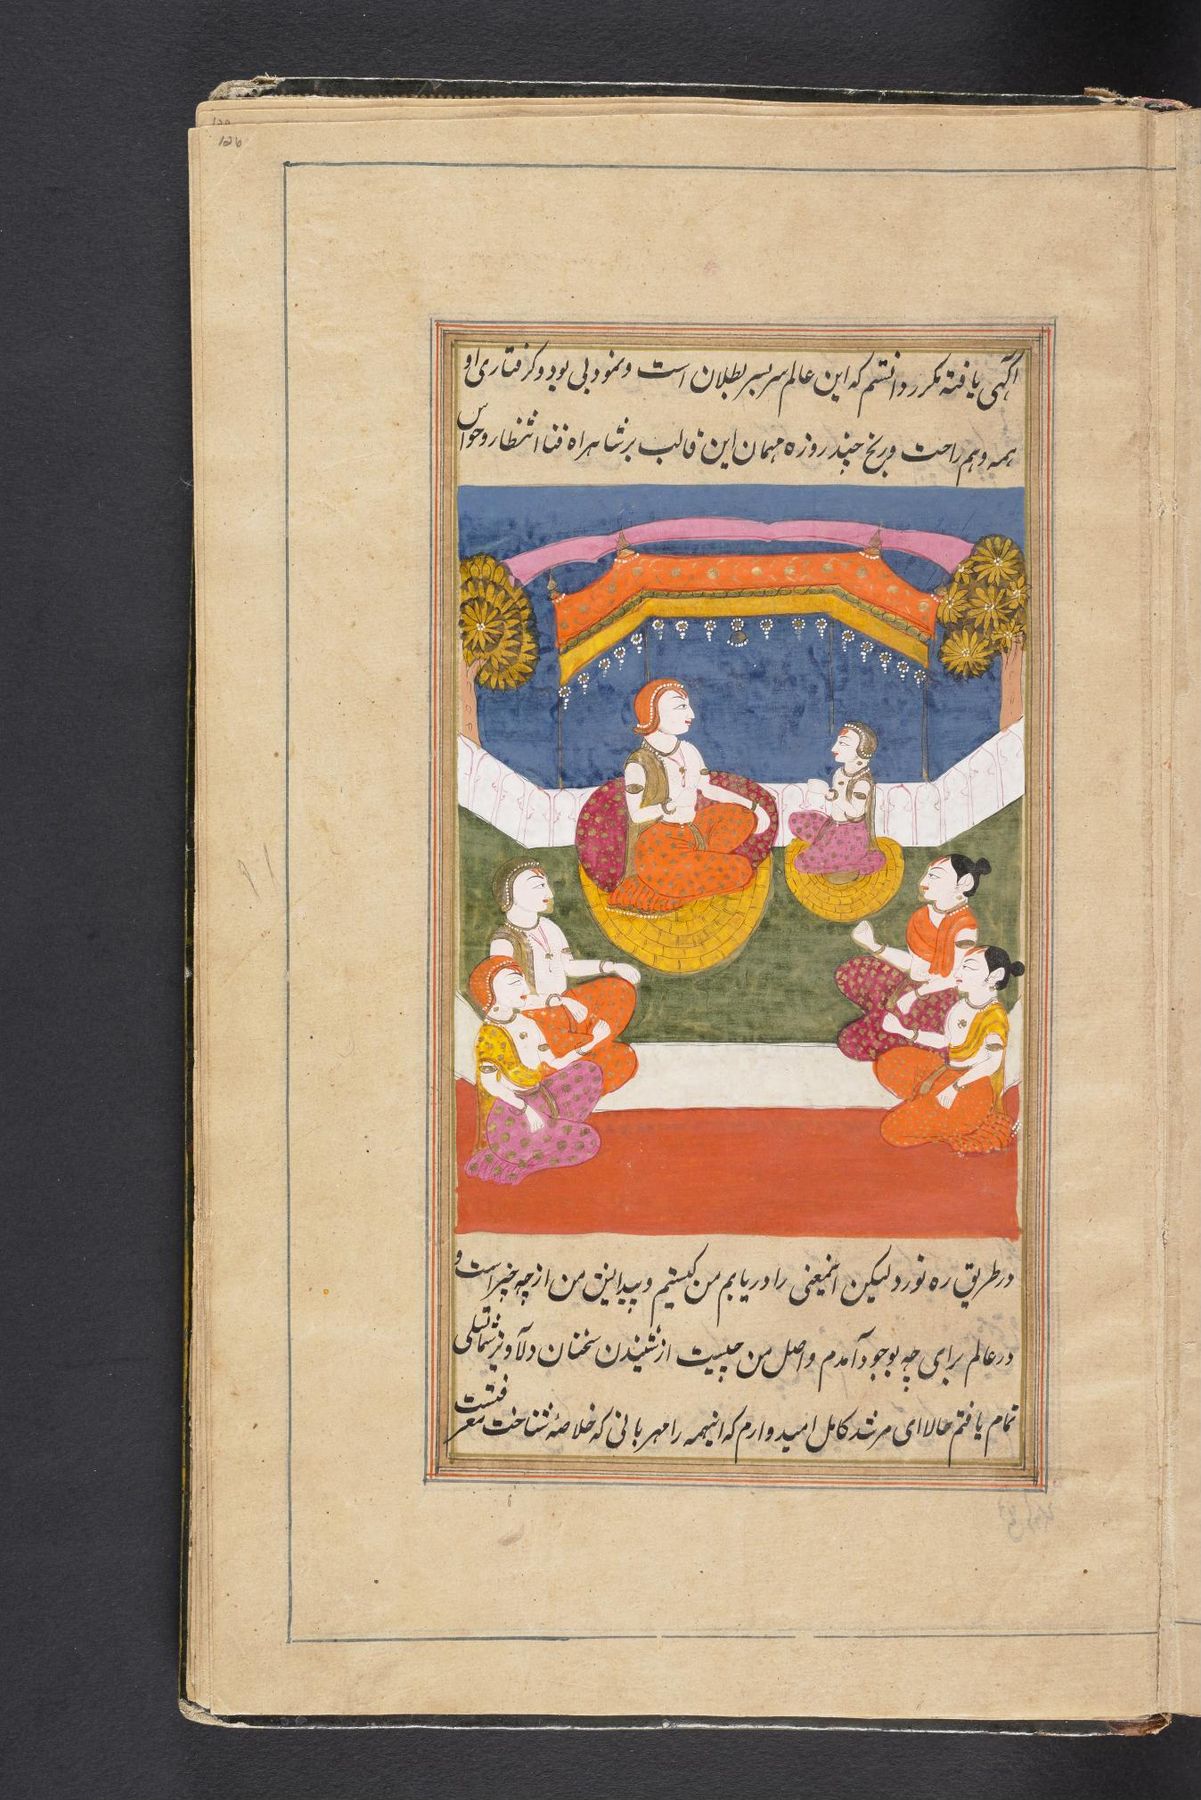 126
اگهی یافته مکرر دانستم که این عالم سربسر بطلان است و نمود بی بود و گرفتاری او
همه وهم راحت و رنج چند روزه مهمان این قالب بر شاهراه فنا انتظار و حواس
در طریق ره نورد لیکن اینمعنی را دریابم من کیستم و پیدایش من از چه چیز است و
در عالم برای چه بوجود آمدم و اصل من چیست از شنیدن سخنان دلآویز شما تسلی
تمام یافتم حالا ای مرشد کامل امیدوارم که اینهمه را مهربانی که خلاصهٔ شناخت معرفتست